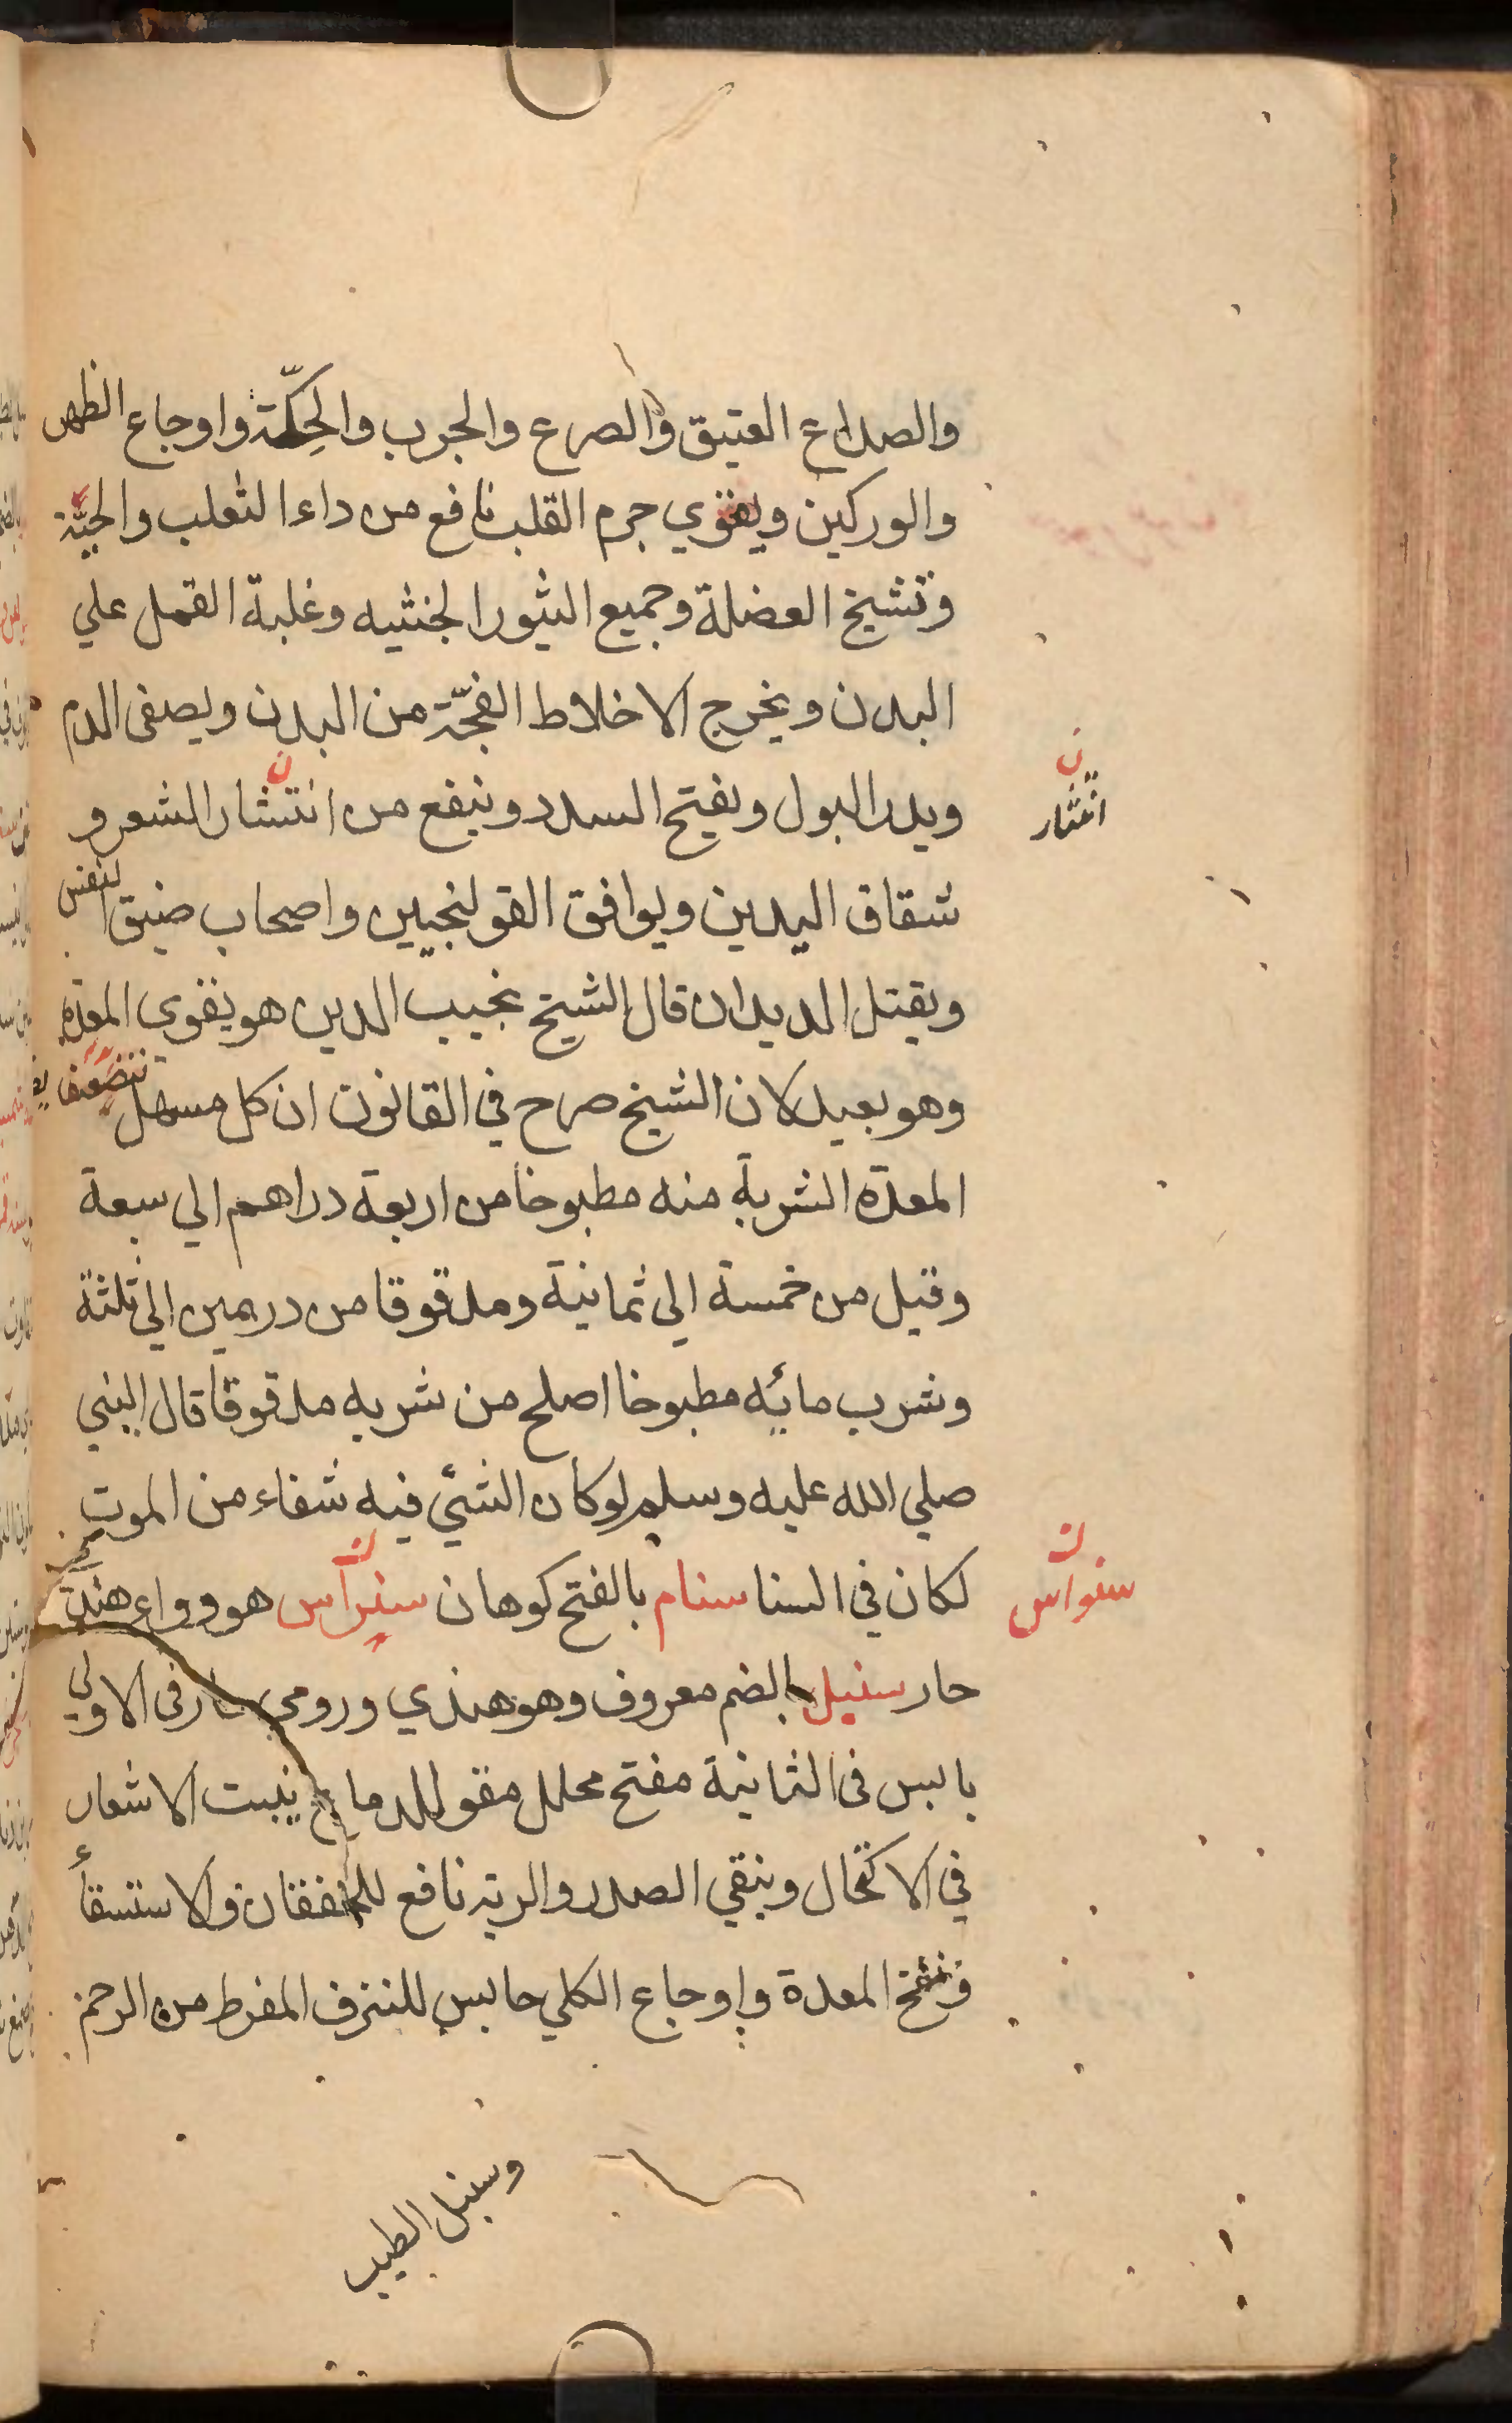 والصداع العتيق والصرع والجرب والحِكّة واوجاع الظهر
والوركين ويقوي جرم القلب نافع من داء الثعلب والحيّة
وتشيخ العضلة وجميع البثور الخبثيه وغلبة القمل علي
البدن ويخرج الاخلاط الفجّة من البدن ويصفى الدم
ويدر البول ويفتح السدد وينفع من انتشار الشعر و
ن
انتثار
شقاق اليدين ويوافق القولنجيين واصحاب ضيق النفس
ويقتل الديدان قال الشيخ نجيب الدين هو يقوي المعدة
وهو بعيد لان الشيخ صرح في القانون ان كل مسهل
المعدة الشربة منه مطبوخا من اربعة دراهم الي سبعة
وقيل من خمسة الى ثمانية ومدقوقا من درهمين الي ثلثة
وشرب مائه مطبوخا اصلح من شربه مدقوقا قال النبي
صلي الله عليه وسلم لو كان الشئي فيه شفاء من الموت
لكان في السنا سنام بالفتح كوهان سنرآس هو وواء هندي
ن
سنواس
حار سنبل بالضم معروف وهو هندي ورومي حار في الاولي
يابس في الثانية مفتح محلل مقو للدماغ ينبت الاشعار
في الاكتحال وينقي الصدر والرية نافع للخفقان والاستسقأ
ونفخ المعدة واوجاع الكلي حابس للنزف المفرط من الرحم
وسنبل الطيب